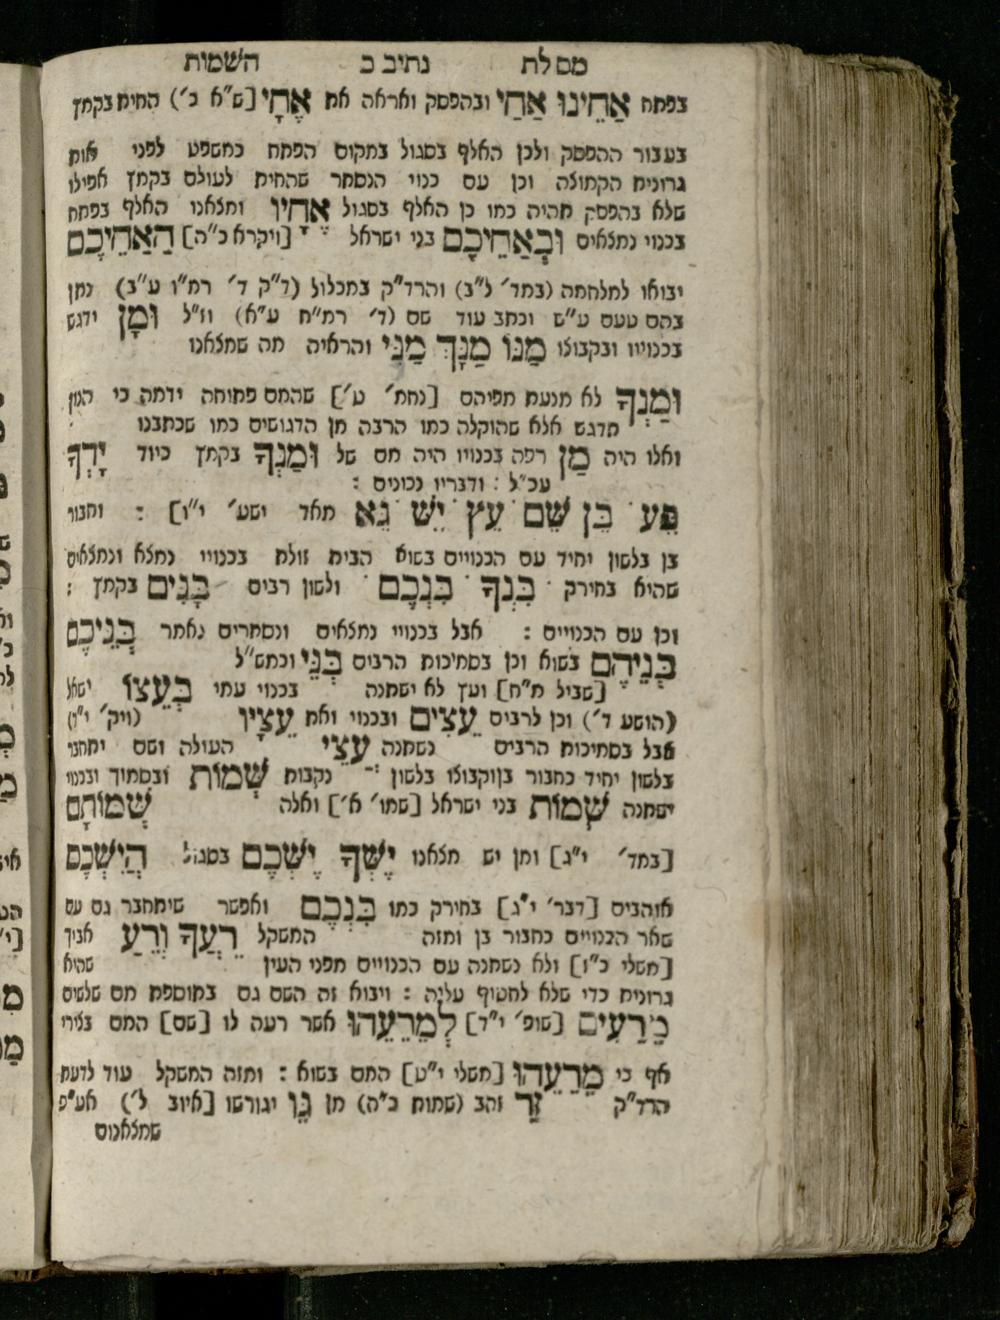 מסלת נתיב כ השמות
בפתח אַחֵינוּ אַחַי ובהפסק ואראה את אֶחָי [ש"א כ'] החית בקמץ
בעבור ההפסק ולכן האלף בסגול במקום הפתח כמשפט לפני אות
גרונית הקמוצה וכן עם כנוי הנסתר שהחית לעולם בקמץ אפילו
שלא בהפסק תהיה כמו כן האלף בסגול אֶחָיו ומצאנו האלף בפתח
בכנוי נמצאים וּבְאַחֵיכֶם בני ישראל [ויקרא כ"ה] הַאַחֵיכֶם
יבואו למלחמה (במד' ל"ב) והרד"ק במכלול (ד"ק ד' רמ"ו ע"ב) נתן
בהם טעם ע"ש וכתב עוד שם (ד' רמ"ח ע"א) וז"ל וּמָן ידגש
בכנוייו ובקבוצו מַנּוֹ מַנָּךְ מַנִּי והראיה מה שמצאנו
וּמַנְךָ לא מנעת מפיהם [נחמ' ט'] שהמם פתוחה ידמה כי הנון
מדגש אלא שהוקלה כמו הרבה מן הדגושים כמו שכתבנו
ואלו היה מָן רפה בכנויו היה מם של וּמַנְךָ בקמץ כיוד יָדְךָ
עכ"ל : ודבריו נכונים :
פֵּעַ בֵּן שֵׁם עֵץ יֵשׁ גֵּא מאד ישע' י"ו] : וחבור
בן בלשון יחיד עם הכנויים בשוא הבית זולת בכנויי נמצא ונמצאים
שהיא בחירק בִּנְךָ בִּנְכֶם ולשון רבים בָּנִים בקמץ :
וכן עם הכנויים : אבל בכנויי נמצאים ונסתרים נאמר בְּנֵיכֶם
בְּנֵיהֶם בשוא וכן בסמיכות הרבים בְּנֵי וכמש"ל
[שביל מ"ח] ועץ לא ישתנה בכנוי עמי בְּעֵצוֹ ישאל
(הושע ד') וכן לרבים עֵצִים ובכנוי ואת עֵצָיו (ויק' י"ו)
אבל בסמיכות הרבים נשתנה עֲצֵי העולה ושם יתחבר
בלשון יחיד כחבור בן וקבוצו בלשון נקבות שֵׁמוֹת ובסמוך ובכנוי
ישתנה שְׁמוֹת בני ישראל [שמו' א'] ואלה שְׁמוֹתָם
[במד' י"ג] ומן יש מצאנו יֶשְׁךָ יֶשְׁכֶם בסגול הֲיִשְׁכֶם
אוהבים [דבר' י"ג] בחירק כמו בִּנְכֶם ואפשר שיתחבר גם עם
שאר הכנויים כחבור בן ומזה המשקל רֵעֲךָ וְרֵעַ אביך
[משלי כ"ז] ולא נשתנה עם הכנויים מפני העין שהיא
גרונית כדי שלא לחטוף עליה : ויבוא זה השם גם בתוספת מם שלשים
מֵרֵעִים [שופ' י"ד] לְמֵרֵעֵהוּ אשר רעה לו [שם] המם בצירי
אף כי מְרֵעֵהוּ [משלי י"ט] המם בשוא : ומזה המשקל עוד לדעת
הרד"ק זֵר זהב (שמות כ"ה) מן גֵּו יגורשו [איוב ל'] אע"פ
שמצאנום